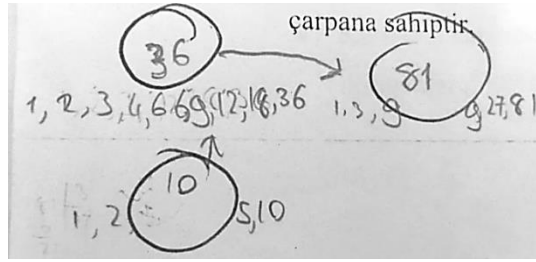 çarpana sahiptir.
36
81
1, 2, 3, 4, 6, 6, 9, 12, 18, 36
1, 3, 9 9, 27, 81
10
1, 2, 5, 10